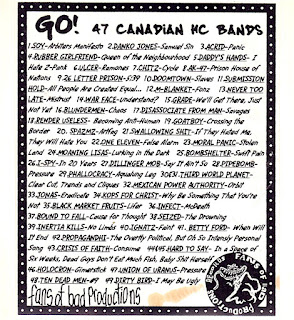 GO! 47 CANADIAN HC BANDS
1.SOY-Arbiters Manifesto 2.DANKO JONES-Samuel Sin 3.ACRID-Panic
4.RUBBER GIRLFRIEND-Queen of the Neighbourhood 5.DADDY'S HANDS-I
Hate Z-Punk 6.ULCER-Ramones 7.CHITZ-Cycle 8.AK-47-Prison House of
Nations 9.26 LETTER PRISON-539 10.DOOMTOWN-Slaves 11.SUBMISSION
HOLD-All People Are Created Equal... 12.M-BLANKET-Fans 13.NEVER TOO
LATE-Mistrust 14.WAR FACE-Understand? 15.GRADE-We'll Get There, Just
Not Yet 16.BLUNDERMEN-Chaos 17.DISASSOCIATE FROM MAN-Savages
18.RENDER USELESS-Becoming Anti-Human 19.GOATBOY-Crossing the
Border 20.SPAZMZ-ArtFag 21.SWALLOWING SHIT-If They Hated Me,
They Will Hate You 22.ONE ELEVEN-Fade Alarm 23.MORAL PANIC-Stolen
Land 24.MOANING LISAS-Lurking in the Dark 25.BOMBSHELTER-Swift Pain
26.I-SPY-In 20 Years 27.DILLINGER MOB-Say It Ain't So 28.PIPEBOMB-
Pressure 29.PHALLOCRACY-Aqualung Leg 30.THIRD WORLD PLANET-
Clear Cut, Trends and Cliques 32.MEXICAN POWER AUTHORITY-Orbit
33.JONAS-Eradicate 34.KOPS FOR CHRIST-Why Be Something That You're
Not 35.BLACK MARKET FRUITS-Lifer 36.INFECT-McDeath
37.BOUND TO FALL-Cause for Thought 38.SEIZED-The Drowning
39.INERTIA KILLS-No Limbs 40.IGNATZ-Faint 41.BETTY FORD-When Will
It End 42.PROPAGANDHI-The Overtly Political, But Oh So Intensely Personal
Song 43.CRISIS OF FAITH-Consume HARD TO SAY-In a Space of
Six Weeks, Dead Guys Don't Eat Much Fish, Baby Shit Herself
46.HOLOCRON-Gimerstick 47.UNION OF URANUS-Pressure
48.TEN DEAD MEN 49.DIRTY BIRD-I May Be Ugly
Fans of bad Productions